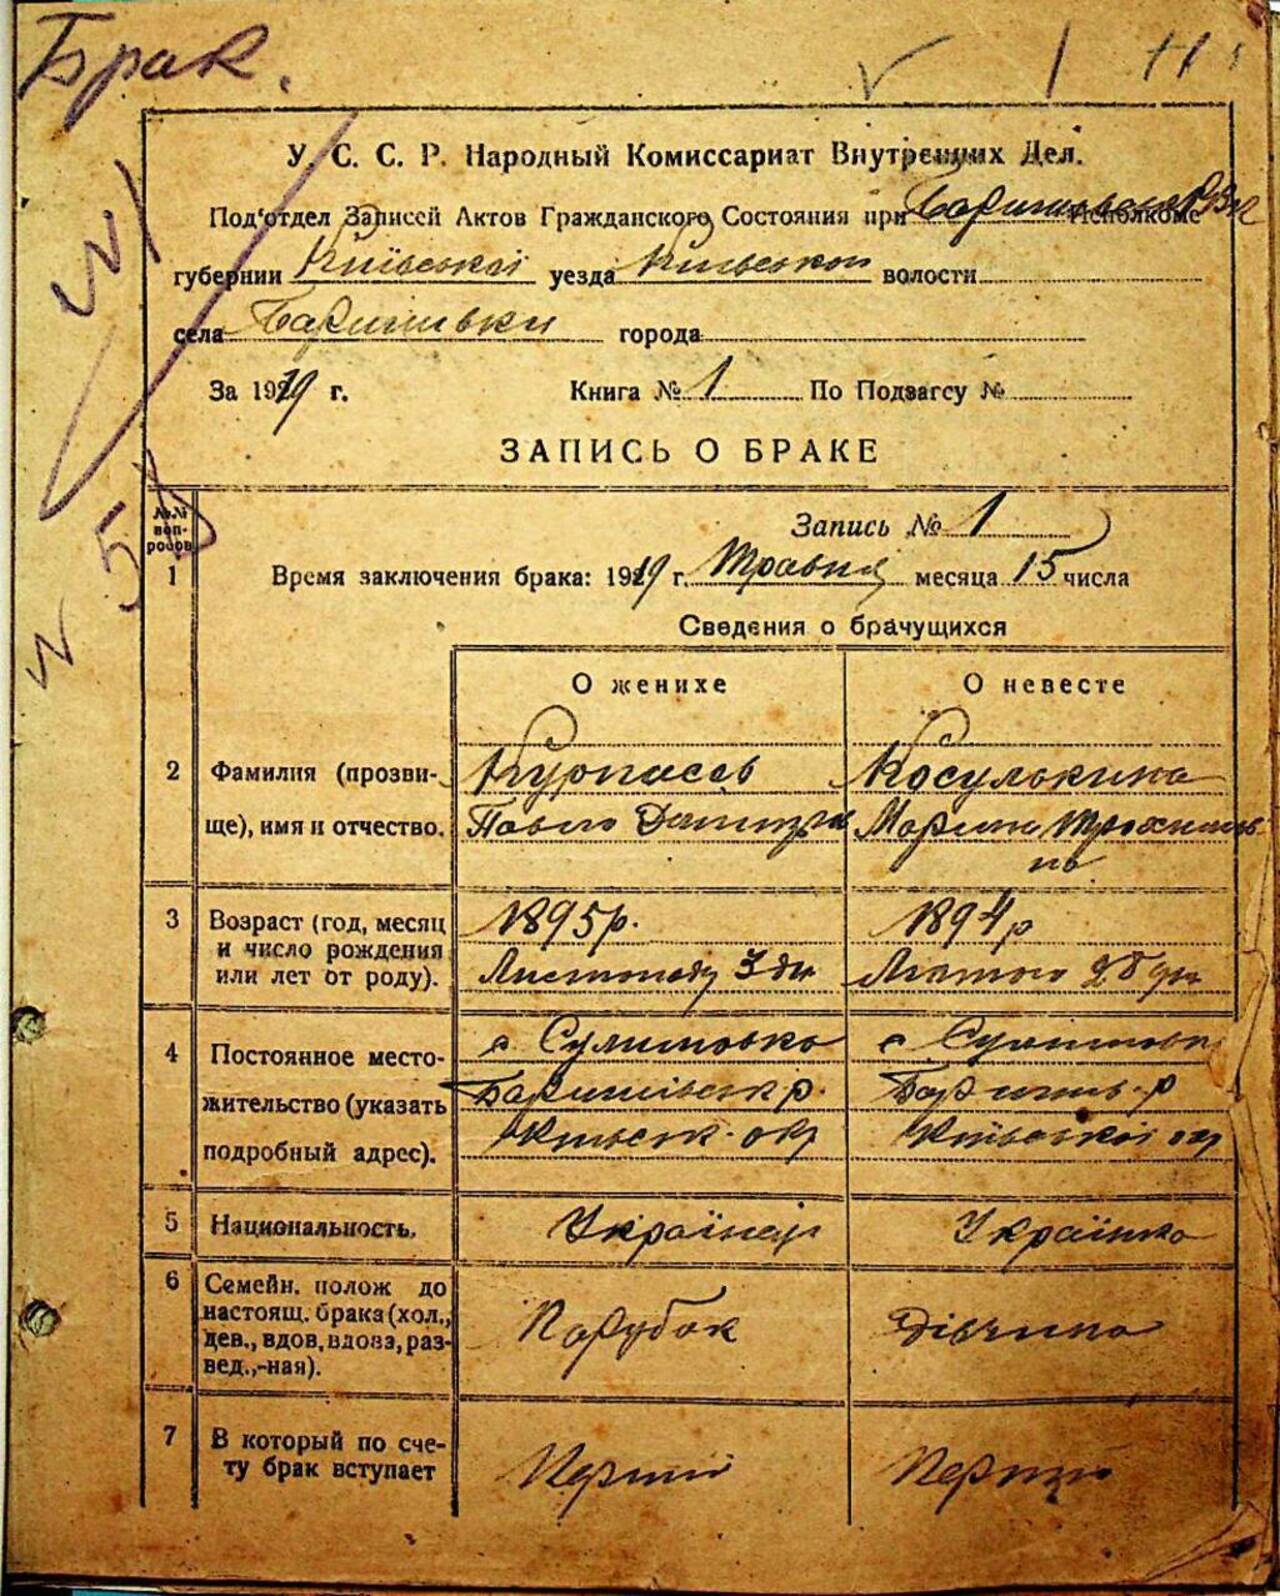 Брак.
У. С. С. Р. Народный Комиссариат Внутренних Дел.
Под'отдел Записей Актов Гражданского Состояния при Исполкоме
губернии Київської уезда Київської волости
села Баришівки города
За 1919 г. Книга № 1 По Подзагсу №
ЗАПИСЬ О БРАКЕ
№№ воп- росов
Запись № 1
1 Время заключения брака: 1919 г. Травня месяца 15 числа
Сведения о брачущихся
О женихе О невесте
2 Фамилия (прозви- Косулькина
ще), имя и отчество. Павло
3 Возраст (год, месяц 1895 р. 1894 р
и число рождения
или лет от роду). Листопаду 3 дн Лютого
4 Постоянное место- с. Сулимовка с Сулимовк
жительство (указать Баришівськ р. Баришів. р
подробный адрес). Київськ. окр Київської окр
5 Национальность. Українець Українка
6 Семейн. полож до
настоящ. брака (хол., Парубок Дівчина
дев., вдов, вдова, раз-
вед.,-ная).
7 В который по сче-
ту брак вступает Перший Перший